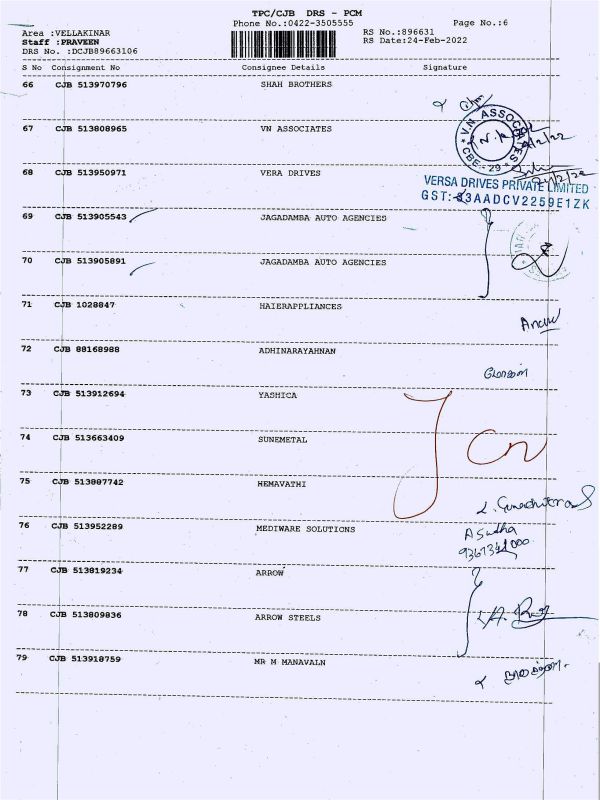 TPC/CJB DRS - PCM
Phone No.:0422-3505555
Page No.:6
Area :VELLAKINAR
Staff :PRAVEEN
DRS No. :DCJB89663106
RS No.:896631
RS Date:24-Feb-2022
S No Consignment No Consignee Details Signature
66 CJB 513970796 SHAH BROTHERS
67 CJB 513808965 VN ASSOCIATES
V.N ASSOCIATES
CBE - 29
68 CJB 513950971 VERA DRIVES
VERSA DRIVES PRIVATE LIMITED
GST:33AADCV2259E1ZK
69 CJB 513905543 JAGADAMBA AUTO AGENCIES
70 CJB 513905891 JAGADAMBA AUTO AGENCIES
71 CJB 1028847 HAIERAPPLIANCES
72 CJB 88168988 ADHINARAYAHNAN
73 CJB 513912694 YASHICA
74 CJB 513663409 SUNEMETAL
75 CJB 513887742 HEMAVATHI
76 CJB 513952289 MEDIWARE SOLUTIONS
A Sudha
77 CJB 513819234 ARROW
78 CJB 513809836 ARROW STEELS
79 CJB 513918759 MR M MANAVALN